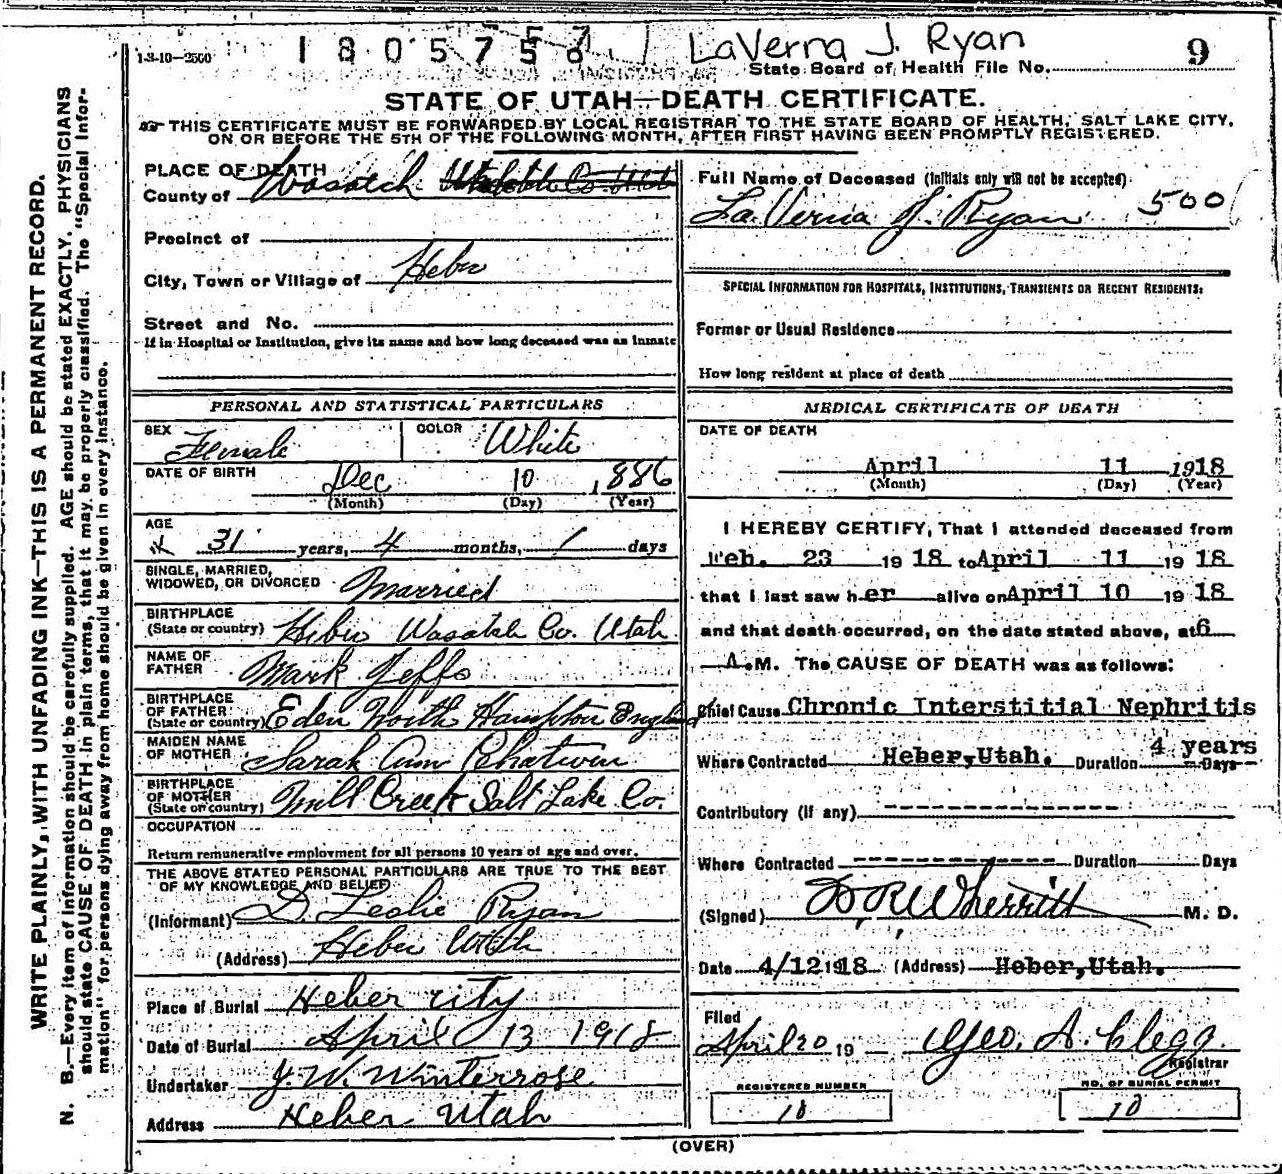 1-3-10-2500
1805757
LaVerna J. Ryan
State Board of Health File No. 9
STATE OF UTAH—DEATH CERTIFICATE.
THIS CERTIFICATE MUST BE FORWARDED BY LOCAL REGISTRAR TO THE STATE BOARD OF HEALTH, SALT LAKE CITY,
ON OR BEFORE THE 5TH OF THE FOLLOWING MONTH, AFTER FIRST HAVING BEEN PROMPTLY REGISTERED.
WRITE PLAINLY, WITH UNFADING INK—THIS IS A PERMANENT RECORD.
N. B.—Every item of information should be carefully supplied. AGE should be stated EXACTLY. PHYSICIANS
should state CAUSE OF DEATH in plain terms, that it may be properly classified. The "Special Infor-
mation" for persons dying away from home should be given in every instance.
PLACE OF DEATH
County of Wasatch
Precinct of
City, Town or Village of Heber
Street and No.
If in Hospital or Institution, give its name and how long deceased was an inmate
PERSONAL AND STATISTICAL PARTICULARS
SEX Female COLOR White
DATE OF BIRTH Dec 10 1886
(Month) (Day) (Year)
AGE
31 years, 4 months, 1 days
SINGLE, MARRIED,
WIDOWED, OR DIVORCED Married
BIRTHPLACE
(State or country) Heber Wasatch Co. Utah
NAME OF
FATHER Mark Jeffs
BIRTHPLACE
OF FATHER
(State or country) Eden North Hampton England
MAIDEN NAME
OF MOTHER Sarah Ann Chatwin
BIRTHPLACE
OF MOTHER
(State or country) Mill Creek Salt Lake Co.
OCCUPATION
Return remunerative employment for all persons 10 years of age and over.
THE ABOVE STATED PERSONAL PARTICULARS ARE TRUE TO THE BEST
OF MY KNOWLEDGE AND BELIEF
(Informant) D. Leslie Ryan
(Address) Heber Utah
Place of Burial Heber City
Date of Burial April 13 1918
Undertaker J. W. Winterrose
Address Heber Utah
Full Name of Deceased (Initials only will not be accepted)
La Verna J. Ryan 500
SPECIAL INFORMATION FOR HOSPITALS, INSTITUTIONS, TRANSIENTS OR RECENT RESIDENTS:
Former or Usual Residence
How long resident at place of death
MEDICAL CERTIFICATE OF DEATH
DATE OF DEATH
April 11 1918
(Month) (Day) (Year)
I HEREBY CERTIFY, That I attended deceased from
Feb. 23 1918 to April 11 1918
that I last saw her alive on April 10 1918
and that death occurred, on the date stated above, at 6
A.M. The CAUSE OF DEATH was as follows:
Chief Cause Chronic Interstitial Nephritis
Where Contracted Heber, Utah. Duration 4 years Days
Contributory (if any)
Where Contracted Duration Days
(Signed) D R Wherritt M. D.
Date 4/12 1918 (Address) Heber, Utah.
Filed
April 20 19 Geo. A. Clegg
Registrar
REGISTERED NUMBER NO. OF BURIAL PERMIT
10 10
(OVER)